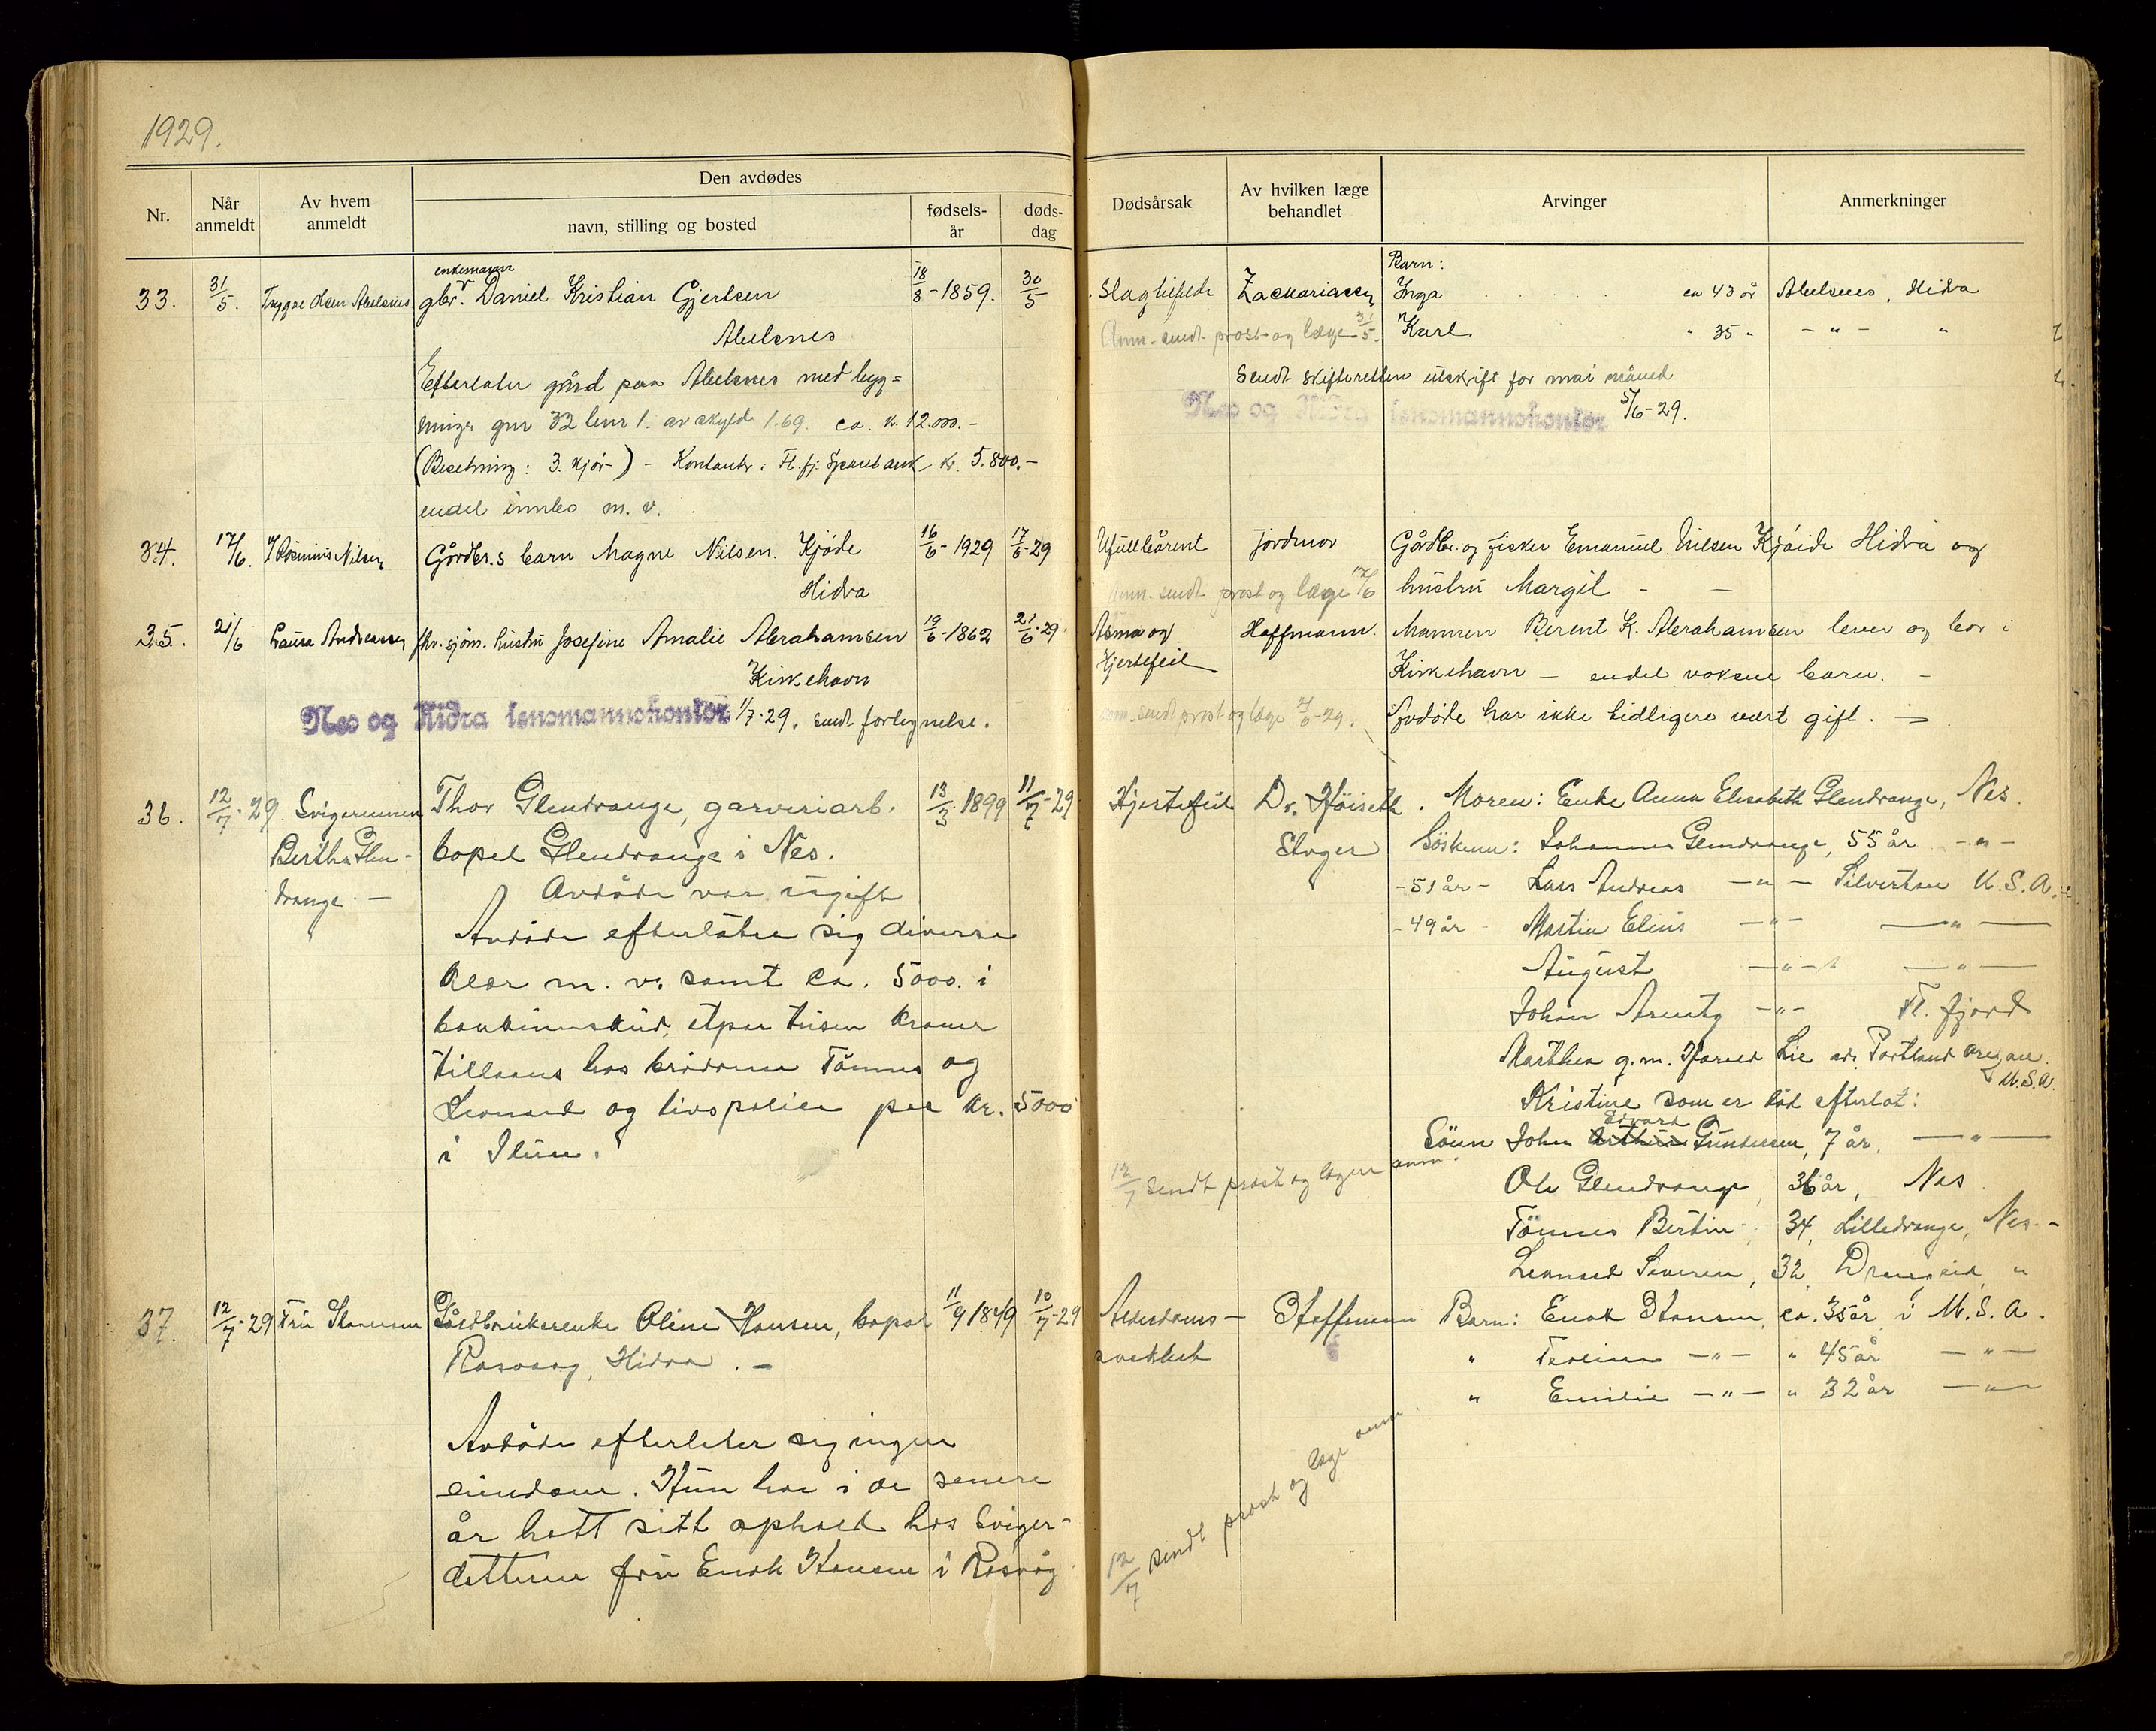 1929.
Nr. Når anmeldt Av hvem anmeldt Den avdødes navn, stilling og bosted fødsels-år døds-dag Dødsårsak Av hvilken læge behandlet Arvinger Anmerkninger
33. 31/5. Trygve Olsen Abelsnes. enkemann gbr. Daniel Kristian Gjertsen 18/8-1859. 30/5
Abelsnes
Efterlater gård paa Abelsnes med byg=
ninger gnr 32 bnr 1. av skyld 1.69. ca. k. 12.000.-
(Besetning: 3. kjør-) - Kontanter i Fl.fj. Sparebank kr. 5.800.-
endel innbo m. v.
34. 17/6. Rosinius Nilsen Gårdbr.s barn Magne Nilsen. Kjøde 16/6-1929 17/6-29
Hidra
35. 21/6 Laura Andreassen fhv. sjøm. hustru Josefine Amalie Abrahamsen 19/6-1862 21/6-29.
Kirkehavn
Nes og Hidra lensmannskontor 1/7-29. sendt forlegnelse.
36. 12/7-29 Svigerinnen Thor Glendrange, garveriarb. 13/3 1899 11/7-29
Bertha Glen- bopel Glendrange i Nes.
drange. - Avdöde var ugift
Avdöde efterlater sig diverse
klær m. v. samt ca. 5000. i
bankinnskud, etpar tusen kroner
tillaans hos brödrene Tönnes og
Leonard og livspolise paa kr. 5000
i Idun.
37. 12/7-29 Fru Hansen Gårdbrukerenke Oline Hansen, bopel 11/9 1849 10/7-29
Rasvaag, Hidra. -
Avdöde efterlater sig ingen
eiendom. Hun har i de senere
år hatt sitt ophold hos sviger-
datteren fru Enok Hansen i Rasvåg
Barn:
Slagtilfelde Zachariassen Inga ca 43 år Abelsnes, Hidra
Anm. sendt prost og læge 31/5. Karl " 35 " - " - "
Sendt skifteretten utskrift for mai måned
Nes og Hidra lensmannskontor 5/6-29.
Ufullbårent jordmor Gårdbr. og fisker Emanuel Nilsen Kjöide Hidra og
Anm. sendt prost og læge 17/6 hustru Margit - -
Asma og Hoffmann. Mannen Berent K. Abrahamsen lever og bor i
Hjertefeil Kirkehavn - endel voksne barn. -
Anm. sendt prost og læge 21/6-29. Avdøde har ikke tidligere vært gift. -
Hjertefeil Dr. Höiseth. Moren: Enke Anna Elisabeth Glendrange, Nes.
Söskenn: Johannes Glendrange, 55 år -"-
-51 år- Lars Andreas -"- Silvertone U.S.A.
-49 år- Martin Elius -"- -"-
August -"- -"-
Johan Arentz -"- Fl. fjord
Marthea g.m. Harald Lie adr. Portland Oregon U.S.A.
Kristine som er död efterlot:
Sönn John Edvard Gundersen, 7 år, -"-
12/7 sendt prost og lægen anm.
Ole Glendrange, 36 år, Nes
Tönnes Bertin, 34, Lilledrange, Nes.-
Leonard Severin, 32, Drangeid "
Alderdoms- Hoffmann Barn: Enok Hansen, ca. 35 år i U.S.A.
svakhet " -"- " 45 år -"-
" Emilie -"- " 32 år -"-
12/7 sendt prost og læge anm.